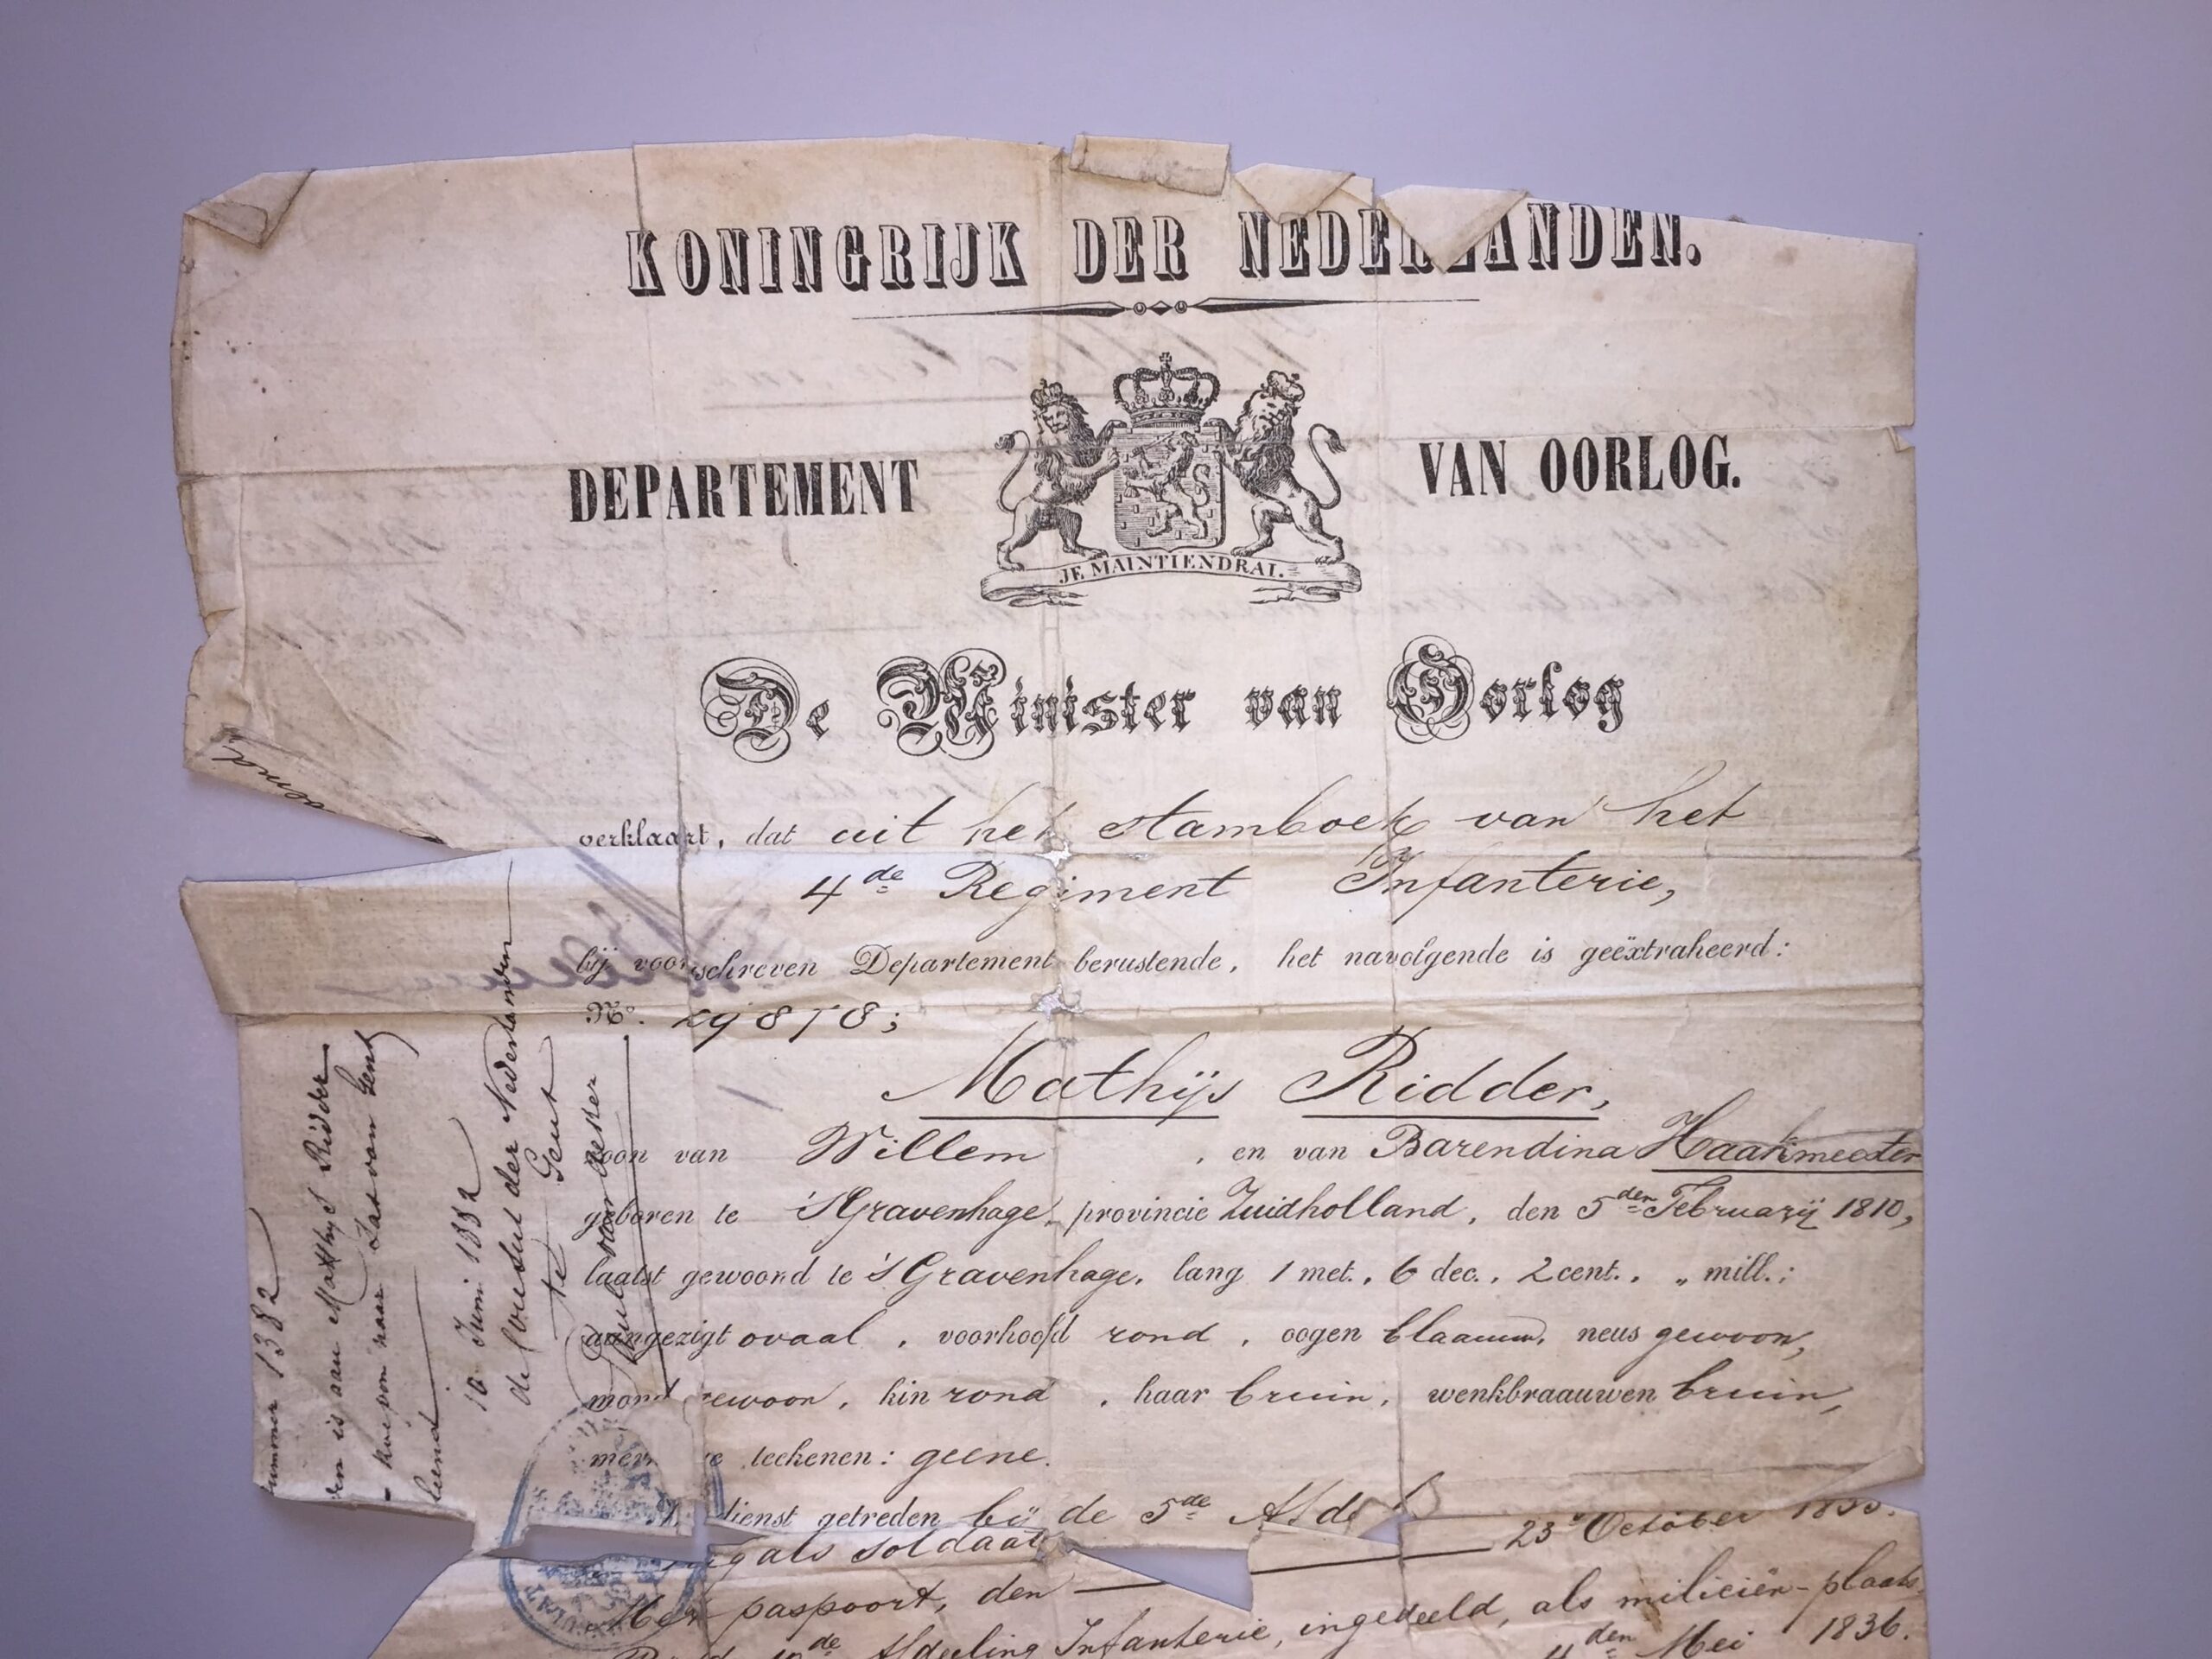 KONINGRIJK DER NEDERLANDEN.
DEPARTEMENT VAN OORLOG.
JE MAINTIENDRAI.
De Minister van Oorlog
verklaart, dat uit het stamboek van het
4de Regiment Infanterie,
bij voorschreven Departement berustende, het navolgende is geëxtraheerd:
No.
Mathijs Ridder,
zoon van Willem, en van Barendina Haakmeester
geboren te 'sGravenhage, provincie Zuidholland, den 5den Februarij 1810,
laatst gewoond te 'sGravenhage, lang 1 met., 6 dec., 2 cent., „ mill.:
aangezigt ovaal, voorhoofd rond, oogen blaauw, neus gewoon,
mond gewoon, kin rond, haar bruin, wenkbraauwen bruin,
teekenen: geene.
dienst getreden bij de 5de
23 October
als soldaat
paspoort, den
Afdeeling Infanterie, ingedeeld, als milicien-plaats
4den Mei 1836.
nummer 1382
is aan Matthys Ridder
naar van Gent
10 Juni 1882
de Consul der Nederlanden
te Gent